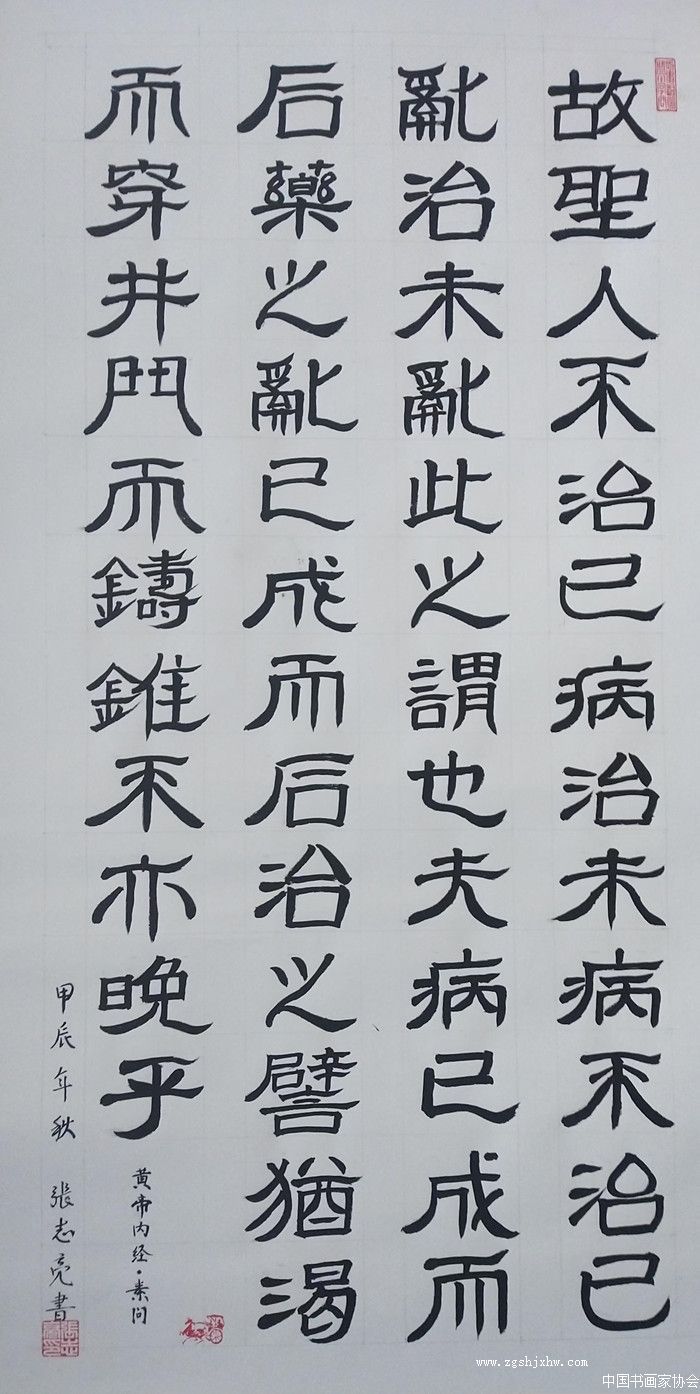 故聖人不治已病治未病不治已
亂治未亂此之謂也夫病已成而
后藥之亂已成而后治之譬猶渴
而穿井鬥而鑄錐不亦晚乎
黄帝内经·素问
甲辰年秋 張志亮書
www.zgshjxhw.com
中国书画家协会